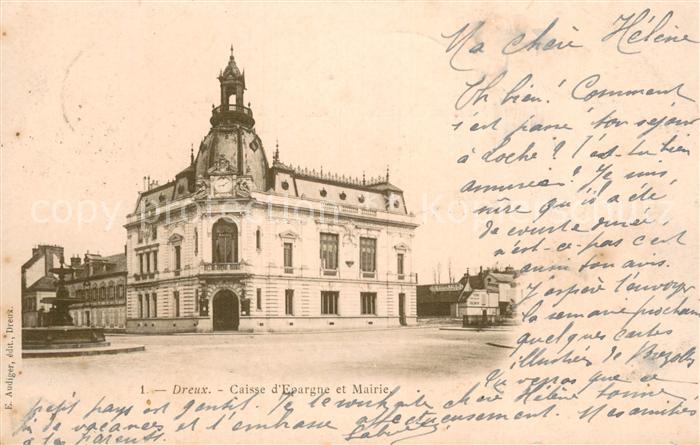 Ma chère Hélène
Eh bien! Comment
s'est passé ton séjour
à Loché? T'es-tu bien
amusée? Je suis
sûre qu'il a été
de courte durée
n'est-ce pas c'est
aussi ton avis.
J'espère t'envoyer
la semaine prochaine
quelques cartes
illustrées de
Tu verras que ce
petit pays est gentil. Je te souhaite chère Hélène bonne
fin de vacances et t'embrasse affectueusement. Mes amitiés
à tes parents.
1. — Dreux. - Caisse d'Epargne et Mairie
E. Audiger, édit., Dreux.
copyright